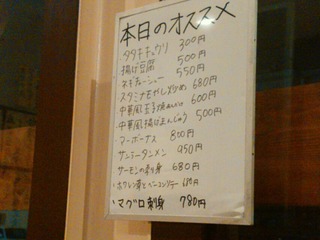 本日のオススメ
・タタキキュウリ 300円
・揚げ豆腐 500円
・ネギチャーシュー 550円
・スタミナもやし炒め 680円
・中華風玉子焼 600円
・中華風揚げまんじゅう 500円
・マーボーナス 800円
・サンラータンメン 950円
・サーモンの刺身 680円
・ホウレン草とベーコンソテー 680円
・マグロ刺身 780円